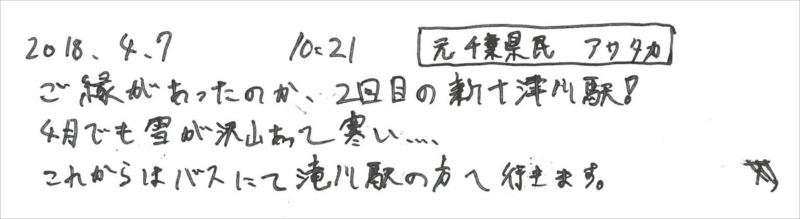 2018.4.7 10:21 元千葉県民 アサタカ
ご縁があったのか、2回目の新十津川駅!
4月でも雪が沢山あって寒い....
これからはバスにて滝川駅の方へ行きます。